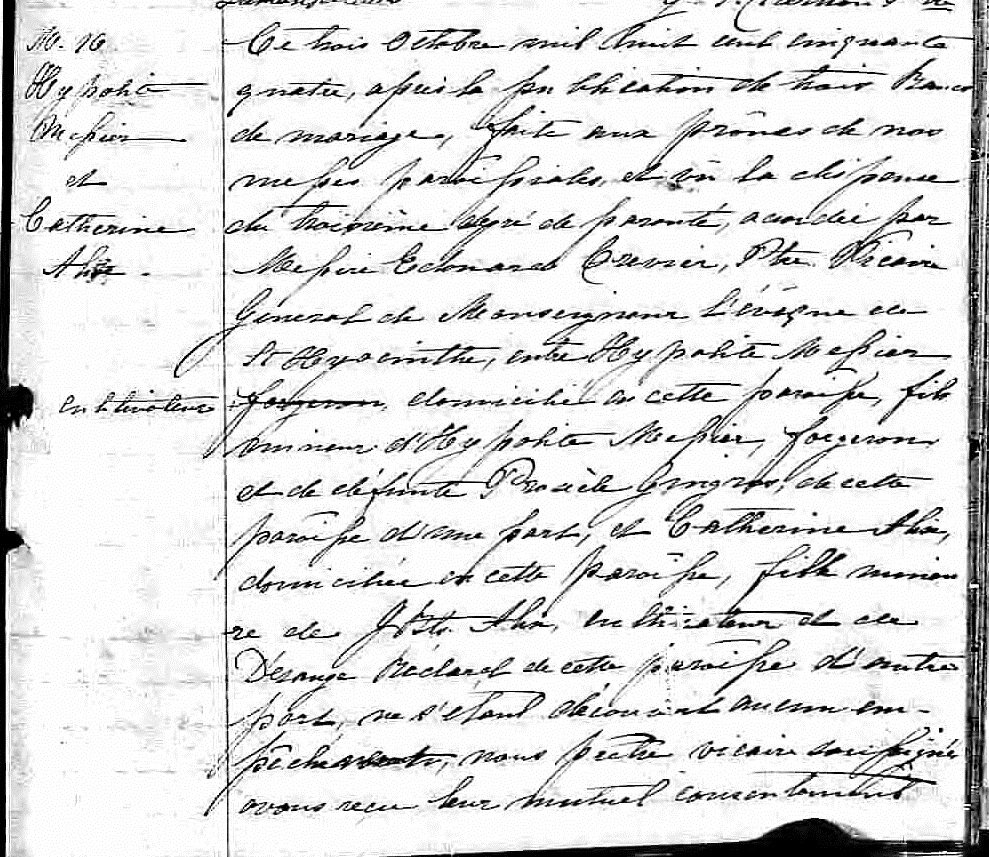 M. 26
Hypolite
Messier
et
Catherine
Alix.
Ce trois Octobre mil huit cent cinquante
quatre, après la publication de trois Bancs
de mariage, faite aux prônes de nos
messes paroissiales, et vû la dispense
du troisième dégré de parenté, acordée par
Messire Edouard Crevier, Ptre Vicaire
Général de Monseigneur l'évêque de
St Hyacinthe, entre Hypolite Messier
cultivateur
forgeron, domicilié en cette paroisse, fils
mineur d'Hypolite Messier, forgeron
et de défunte Gingras, de cette
paroisse d'une part, et Catherine Alix,
domiciliée en cette paroisse, fille mineu
re de J Bte. Alix, cultivateur et de
Désange de cette paroisse d'autre
part, ne s'étant découvert aucun em-
pêchement, nous prêtre vicaire soussigné
avons reçu leur mutuel consentement